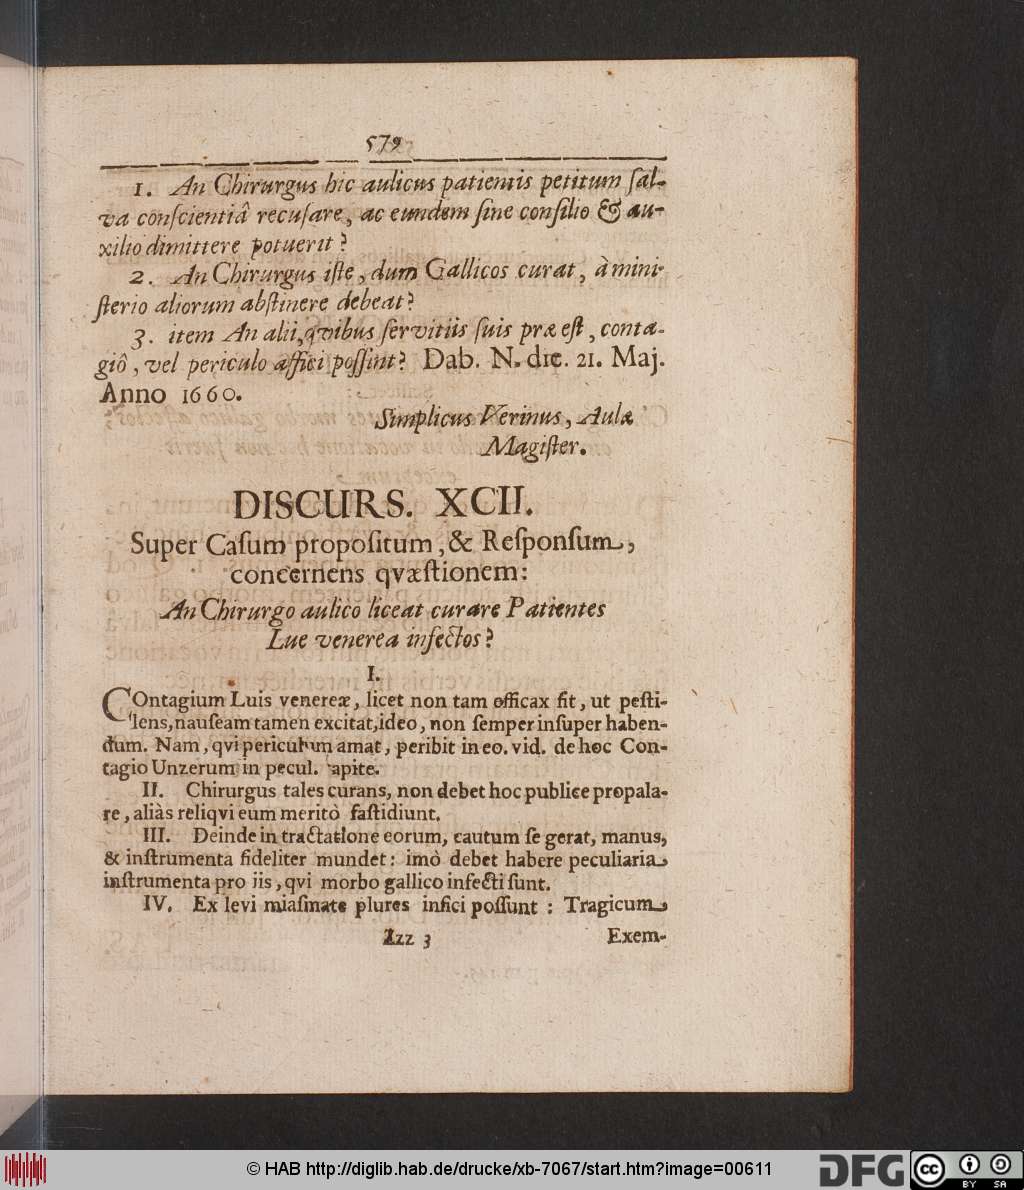 579
1. An Chirurgus hic aulicus patientis petitum ſal-
va conſcientiâ recuſare, ac eundem ſine conſilio & au-
xilio dimittere potuerit?
2. An Chirurgus iſte, dum Gallicos curat, à mini-
ſterio aliorum abſtinere debeat?
3. item An alii, qvibus ſervitiis ſuis præ eſt, conta-
giô, vel periculo affici poſſint? Dab. N. die. 21. Maj.
Anno 1660.
Simplicus Verinus, Aulæ
Magiſter.
DISCURS. XCII.
Super Caſum propoſitum, & Reſponſum,
concernens qvæſtionem:
An Chirurgo aulico liceat curare Patientes
Lue venerea infectos?
I.
COntagium Luis venereæ, licet non tam efficax ſit, ut peſti-
lens, nauſeam tamen excitat, ideo, non ſemper inſuper haben-
dum. Nam, qvi periculum amat, peribit in eo. vid. de hoc Con-
tagio Unzerum in pecul. apite.
II. Chirurgus tales curans, non debet hoc publice propala-
re, aliàs reliqvi eum meritò faſtidiunt.
III. Deinde in tractatione eorum, cautum ſe gerat, manus,
& inſtrumenta fideliter mundet: imò debet habere peculiaria
inſtrumenta pro iis, qvi morbo gallico infecti ſunt.
IV. Ex levi miaſmate plures infici poſſunt: Tragicum
Zzz 3 Exem-
© HAB http://diglib.hab.de/drucke/xb-7067/start.htm?image=00611
DFG
cc BY SA